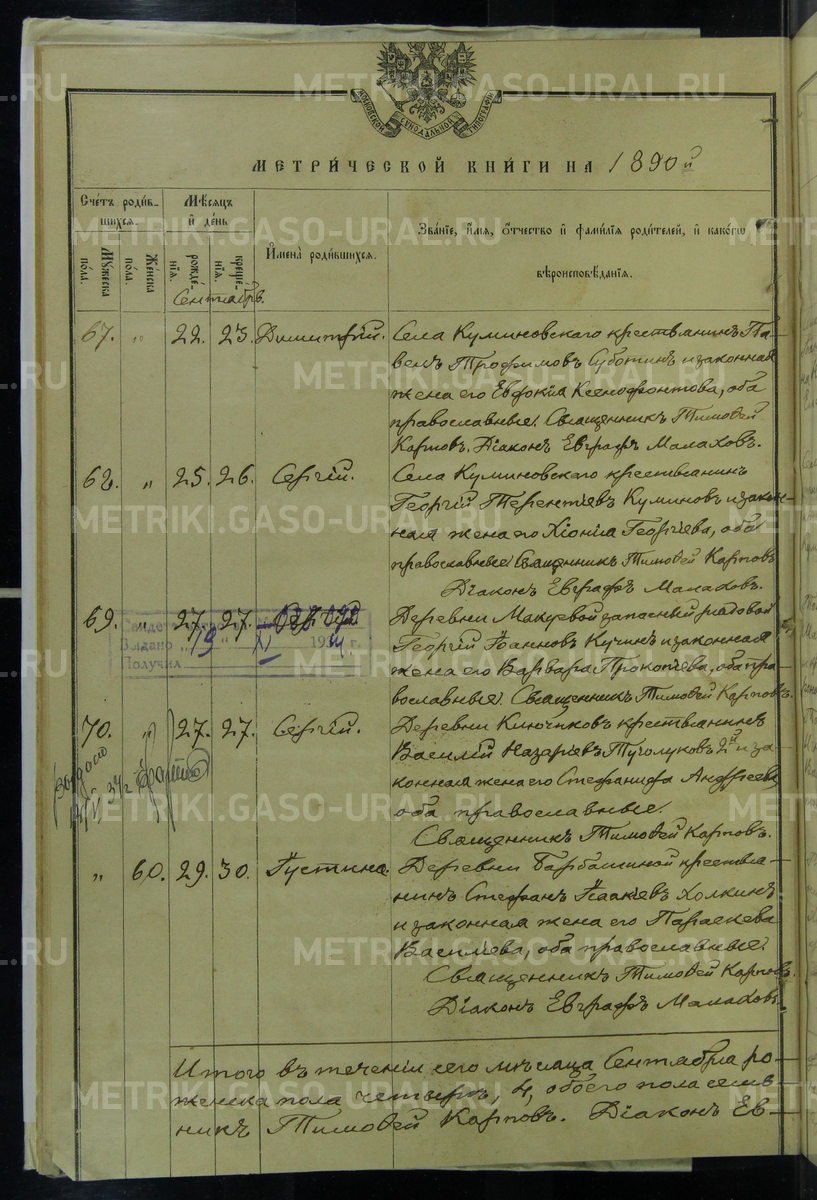 МОСКОВСКОЙ СѴНОДАЛЬНОЙ ТИПОГРАФІИ
МЕТРИ́ЧЕСКОЙ КНИ́ГИ НА 1890й
Сче́тъ роди́вшихся.
Мѣ́сяцъ и҆ де́нь
Му́жеска по́ла.
Же́нска по́ла.
рожде́нїя.
креще́нїя.
И҆мена̀ роди́вшихся.
Зва́нїе, и҆́мя, ѻ҆́тчество и҆ фами́лїя роди́телей, и҆ како́гѡ
вѣроисповѣ́данїя.
Сентябрь.
67. „ 22. 23. Димитрій. Села Куминовскаго крестьянинъ Па-
велъ Трофимовъ Суботинъ и законная
жена его Евдокія Ксенофонтова, оба
православные. Священникъ Тимоѳей
Карповъ. Діаконъ Евграфъ Малаховъ.
68. „ 25. 26. Сергій. Села Куминовскаго крестьянинъ
Георгій Терентіевъ Куминовъ и закон-
ная жена его Хіонія Георгіева, оба
православные. Священникъ Тимоѳей Карповъ
Діаконъ Евграфъ Малаховъ.
69. „ 27. 27. Сергій. Деревни Макуевой запасный рядовой
Георгій Іоанновъ Кучинъ и законная
жена его Варвара Прокопіева, оба пра-
вославные. Священникъ Тимоѳей Карповъ.
Выдано „19 „ XI 19 г.
Получил
70. „ 27. 27. Сергій. Деревни Ключиковъ крестьянинъ
Василій Назаріевъ Туголуковъ 2й и за-
конная жена его Стефанида Андреева,
оба православные.
Священникъ Тимоѳей Карповъ.
Выдано
„ 60. 29. 30. Іустина. Деревни Барбашиной крестья-
нинъ Стефанъ Исакіевъ Холкинъ
и законная жена его Параскева
Василіева, оба православные.
Священникъ Тимоѳей Карповъ.
Діаконъ Евграфъ Малаховъ.
Итого въ теченіи сего мѣсяца Сентября ро-
женска пола четыре, 4, обоего пола семь
никъ Тимоѳей Карповъ. Діаконъ Ев-
METRIKI.GASO-URAL.RU